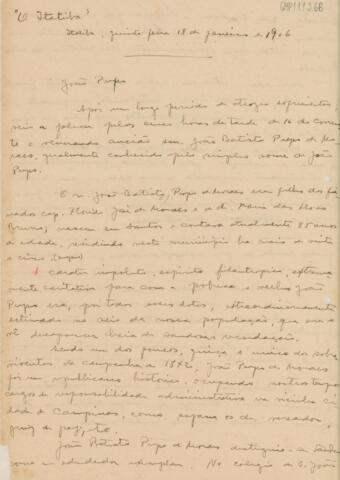 "O Itatiba"
CMP1.1.1.2.66
Itatiba, quinta feira 18 de janeiro de 1906
João Pupo
Após um longo periodo de atrozes sofrimentos,
veio a falecer pelas cinco horas da tarde de 16 do corren-
te o venerando ancião snr. João Batista Pupo de Mo-
raes, geralmente conhecido pelo simples nome de João
Pupo.
O snr. João Batista Pupo de Moraes era filho dos fi-
nados cap. José de Moraes e de d. Maria das Dores
Bruna; nasceu em Santos e contava atualmente 85 anos
de idade, residindo neste municipio ha mais de vinte
e cinco.
Carater impoluto, espirito filantropico, extrema-
mente caritativo para com a pobreza o velho João
Pupo era, por todos esses dotes, extraordinariamente
estimado no seio da nossa população, que ora o
vê desaparecer cheia de saudosa veneração.
Sendo um dos poucos, quiçá o unico dos sobre-
viventes da campanha de 1842, João Pupo de Moraes
foi um republicano historico, ocupando noutros tempos
cargos de responsabilidade administrativa na visinha ci-
dade de Campinas, como sejam os de vereador,
juiz de paz, etc.
João Batista Pupo de Moraes distinguiu-se
como educador exemplar. No colegio de S. João